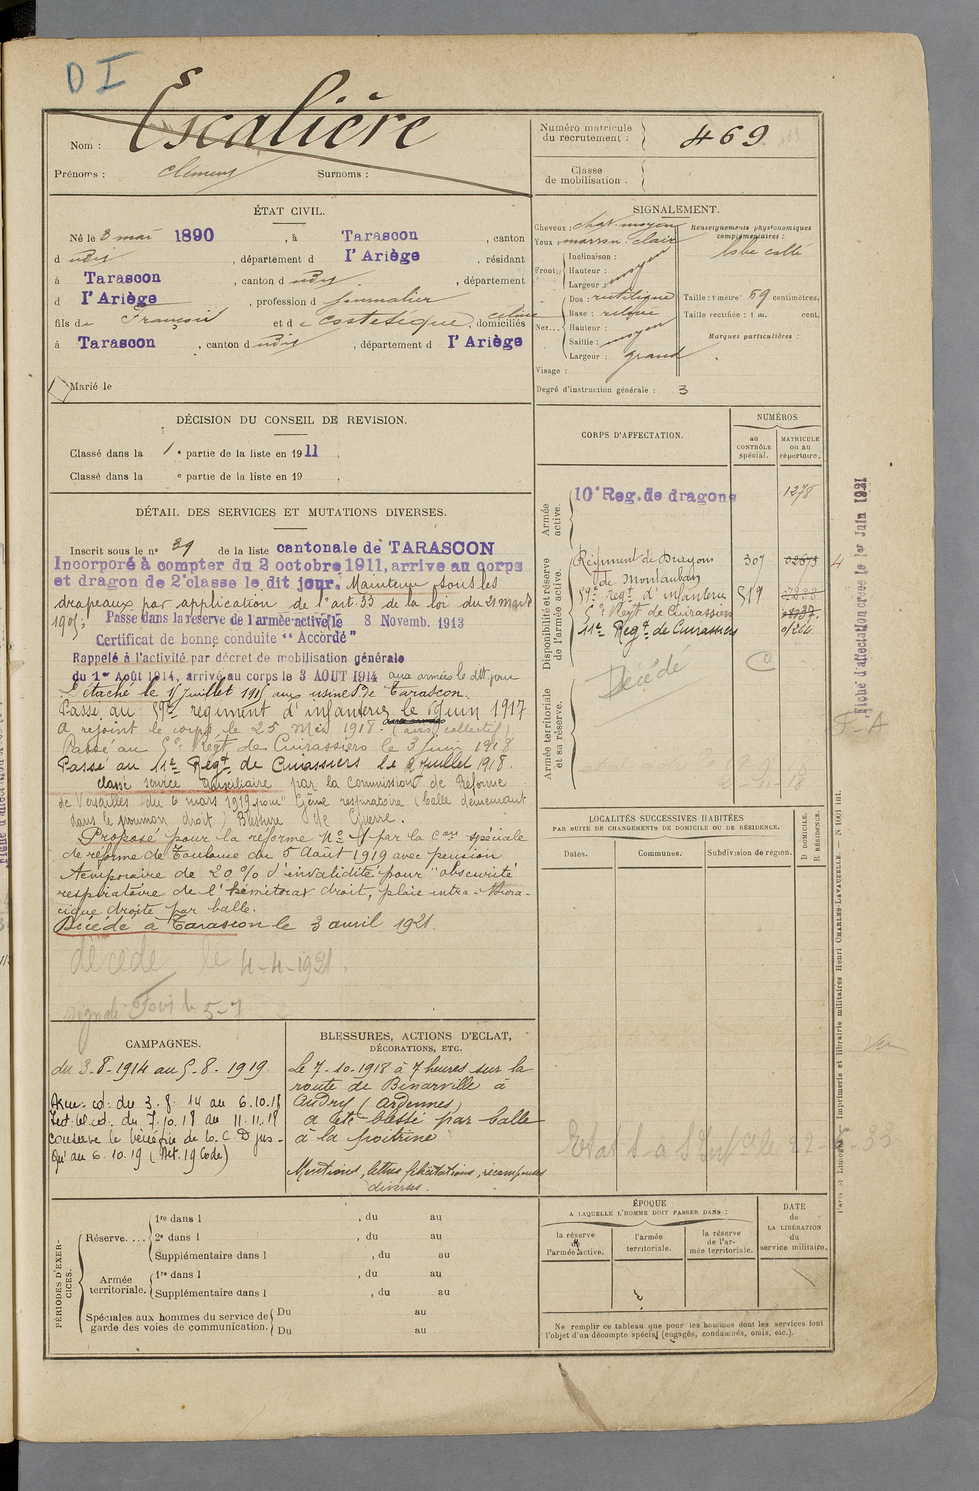 D I
Nom : Escalière
Prénoms : Clément Surnoms :
Numéro matricule du recrutement : 469
Classe de mobilisation :
ÉTAT CIVIL.
Né le 3 mai 1890, à Tarascon, canton
d udit, département d l'Ariège, résidant
à Tarascon, canton d udit, département
d l'Ariège, profession d journalier
fils de François et d e Costesèque, Céline domiciliés
à Tarascon, canton d udit, département d l'Ariège
Marié le
SIGNALEMENT.
Cheveux : chat. moyen
Yeux : marron clair
Front Inclinaison :
Hauteur : moyen
Largeur :
Nez Dos : rectiligne
Base : relevée
Hauteur :
Saillie : moyen
Largeur : grand
Visage :
Renseignements physionomiques complémentaires :
lobe collé
Taille : 1 mètre 69 centimètres.
Taille rectifiée : 1 m. cent.
Marques particulières :
Degré d'instruction générale : 3
DÉCISION DU CONSEIL DE REVISION.
Classé dans la 1e partie de la liste en 1911
Classé dans la e partie de la liste en 19
DÉTAIL DES SERVICES ET MUTATIONS DIVERSES.
Inscrit sous le n° 39 de la liste cantonale de TARASCON
Incorporé à compter du 2 octobre 1911, arrive au corps
et dragon de 2e classe le dit jour. Maintenu sous les
drapeaux par application de l'art. 33 de la loi du 21 mars
1905. Passé dans la réserve de l'armée active le 8 Novemb. 1913
Certificat de bonne conduite "Accordé"
Rappelé à l'activité par décret de mobilisation générale
du 1er Août 1914, arrivé au corps le 3 AOUT 1914 aux armées le dit jour
Détaché le 1 juillet 1915 aux usines de Tarascon.
Passé au 59e régiment d'infanterie le 6 juin 1917
a rejoint le corps le 25 Mai 1918. (avis collectif)
Passé au 5e Régt de Cuirassiers le 3 Juin 1918
Passé au 11e Régt de Cuirassiers le 2 Juillet 1918.
classé service auxiliaire par la Commission de Réforme
de Versailles du 6 mars 1919 pour "Gêne respiratoire (balle demeurant
dans le poumon droit) Blessure de Guerre.
Proposé pour la réforme N° 1 par la Con spéciale
de réforme de Toulouse du 5 Août 1919 avec pension
temporaire de 20% d'invalidité pour "obscurité
respiratoire de l'hémitorax droit, plaie intra-thora-
cique droite par balle.
Décédé à Tarascon le 3 avril 1921.
décédé le 4-4-1921.
CORPS D'AFFECTATION.
NUMÉROS
au CONTRÔLE spécial.
MATRICULE ou au répertoire.
Armée active.
10e Reg. de dragons 1278
Disponibilité et réserve de l'armée active.
Régiment de Dragons de Montauban 307 02675
59e régt d'infanterie 519 2838
5e Régt de Cuirassiers
11e Régt de Cuirassiers
Armée territoriale et sa réserve.
Décédé
LOCALITÉS SUCCESSIVES HABITÉES
PAR SUITE DE CHANGEMENTS DE DOMICILE OU DE RÉSIDENCE.
Dates. Communes. Subdivision de région.
D DOMICILE.
R RÉSIDENCE.
CAMPAGNES.
du 3-8-1914 au 5-8-1919.
du 3.8.14 au 6.10.18
du 7.10.18 au 11.11.18
conserve le bénéfice de la C D jus-
qu'au 6.10.19 (Art. 19 Code)
BLESSURES, ACTIONS D'ÉCLAT, DÉCORATIONS, ETC.
Le 7-10-1918 à 7 heures sur la
route de Binarville à
(Ardennes)
a été blessé par balle
à la poitrine
Mentions, lettres félicitations, récompenses
diverses.
PÉRIODES D'EXERCICES.
Réserve.... 1re dans l , du au
2e dans l , du au
Supplémentaire dans l , du au
Armée territoriale. 1re dans l , du au
Supplémentaire dans l , du au
Spéciales aux hommes du service de garde des voies de communication. Du au
Du au
ÉPOQUE
A LAQUELLE L'HOMME DOIT PASSER DANS :
la réserve de l'armée active.
l'armée territoriale.
la réserve de l'armée territoriale.
DATE de LA LIBÉRATION du service militaire.
Ne remplir ce tableau que pour les hommes dont les services font
l'objet d'un décompte spécial (engagés, condamnés, omis, etc.).
Fiche d'affectation créée le 1er Juin 1921
F-A
Paris et Limoges. — Imprimerie et librairie militaires Henri CHARLES-LAVAUZELLE. — N° 1001 int.